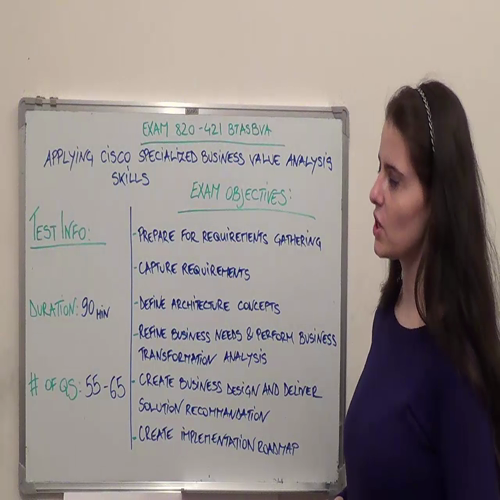 EXAM 820-421 BTASBVA
APPLYING CISCO SPECIALIZED BUSINESS VALUE ANALYSIS
SKILLS
EXAM OBJECTIVES:
TEST INFO:
DURATION: 90 MIN
# OF QS: 55-65
- PREPARE FOR REQUIREMENTS GATHERING
- CAPTURE REQUIREMENTS
- DEFINE ARCHITECTURE CONCEPTS
- REFINE BUSINESS NEEDS & PERFORM BUSINESS
TRANSFORMATION ANALYSIS
- CREATE BUSINESS DESIGN AND DELIVER
SOLUTION RECOMMANDATION
- CREATE IMPLEMENTATION ROADMAP